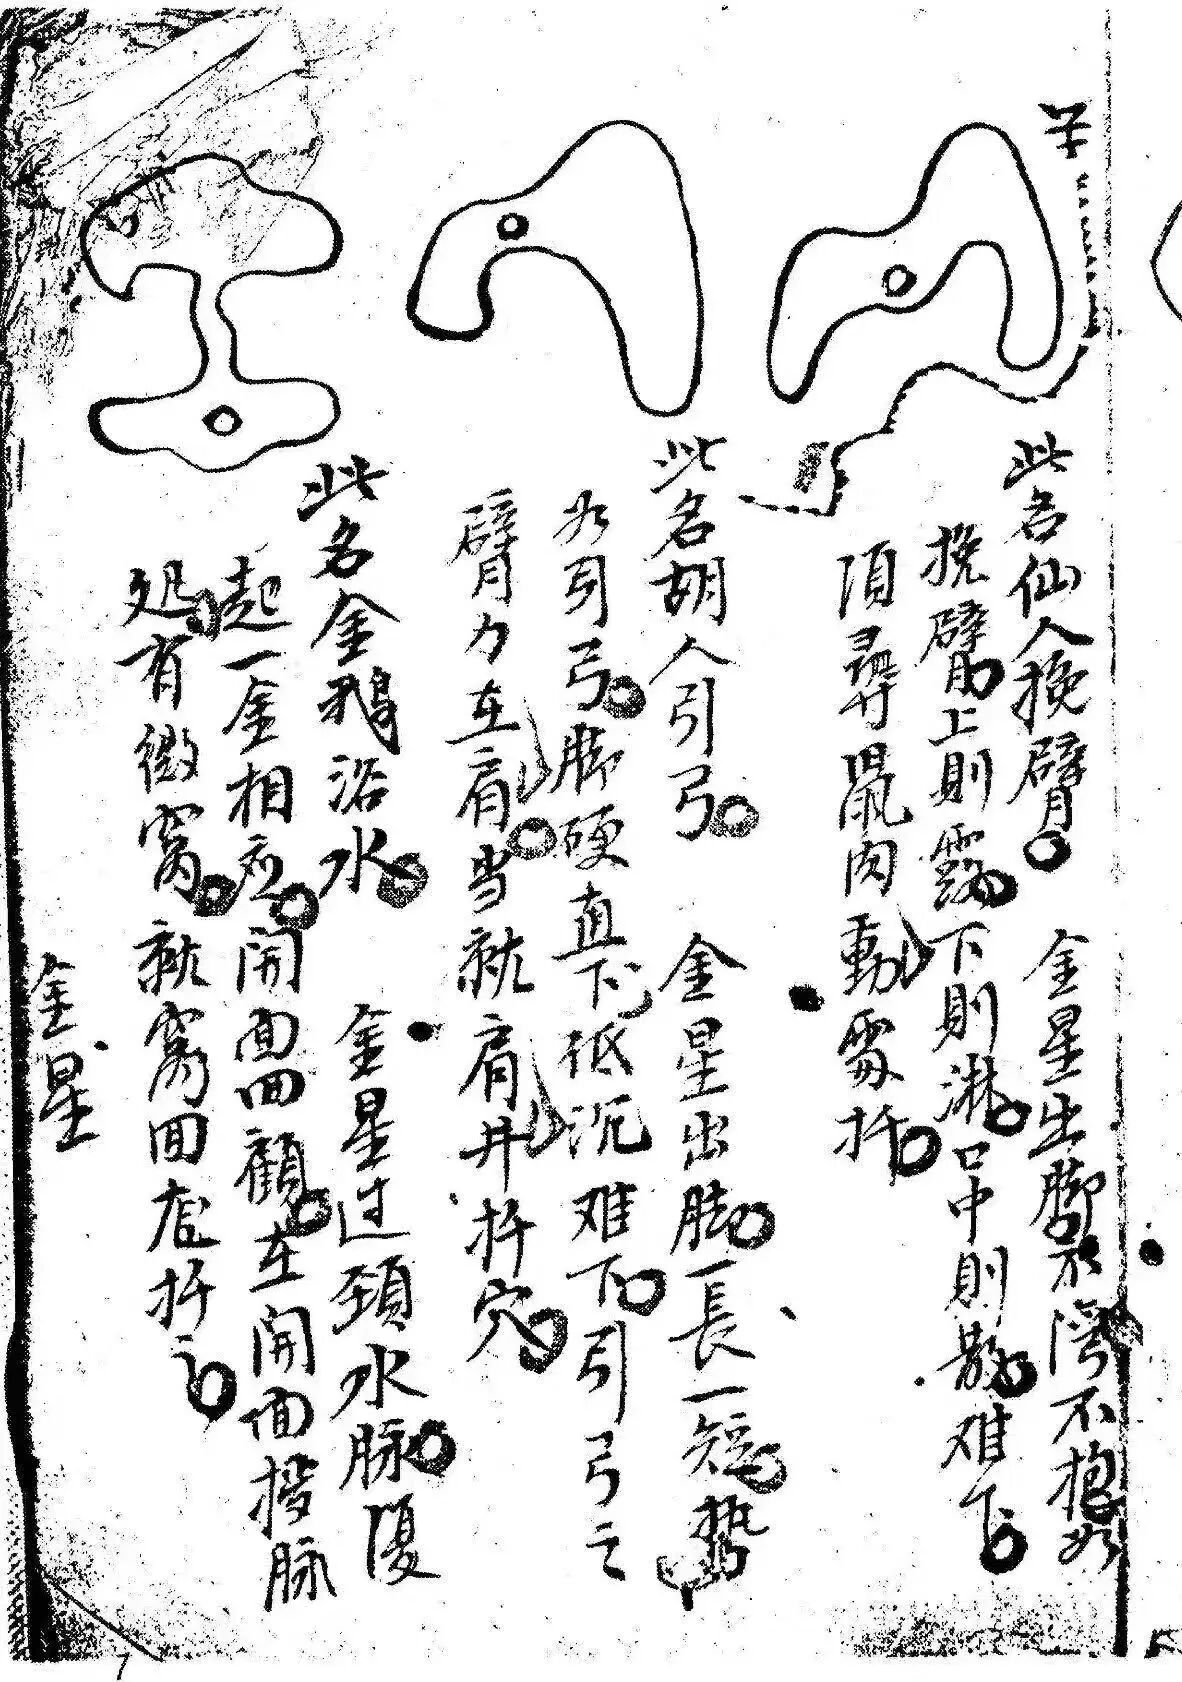 此名仙人挽臂 金星出脚不湾不抱如
挽臂上則露下則淋口中則散难下
須尋鼠肉動處扦
此名胡人引弓 金星出脚一長一短势
如引弓脚硬直下低沉难下引弓之
臂力在肩当就肩井扦穴
此名金鵝浴水 金星过頸水脉復
起一金相应開面回顧在開面接脉
处有微窩就窩回扦之
金星